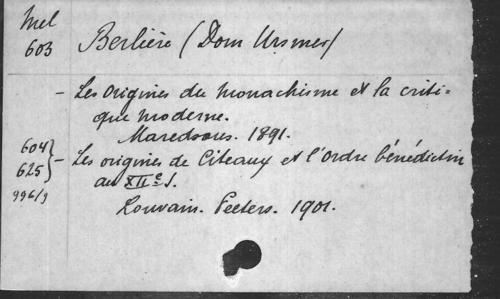 Mel
603
Berlière (Dom Ursmer)
- Les origines du monachisme et la criti-
que moderne.
Maredsous. 1891.
604
625 } - Les origines de Citeaux et l'ordre bénédictin
996/9 au XIIe s.
Louvain. Peeters. 1901.